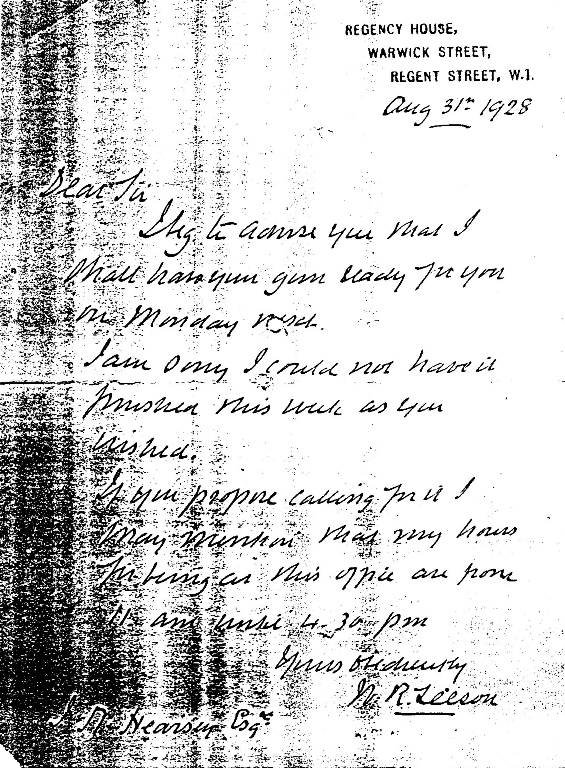 REGENCY HOUSE,
WARWICK STREET,
REGENT STREET, W.1.
Aug 31st 1928
Dear Sir
I beg to advise you that I
shall have your gun ready for you
on Monday next.
I am sorry I could not have it
finished this week as you
wished.
If you propose calling for it I
may mention that my hours
for being at this office are from
11 am until 4.30 pm
Yours obediently
W. R. Leeson
Hearsey Esqre